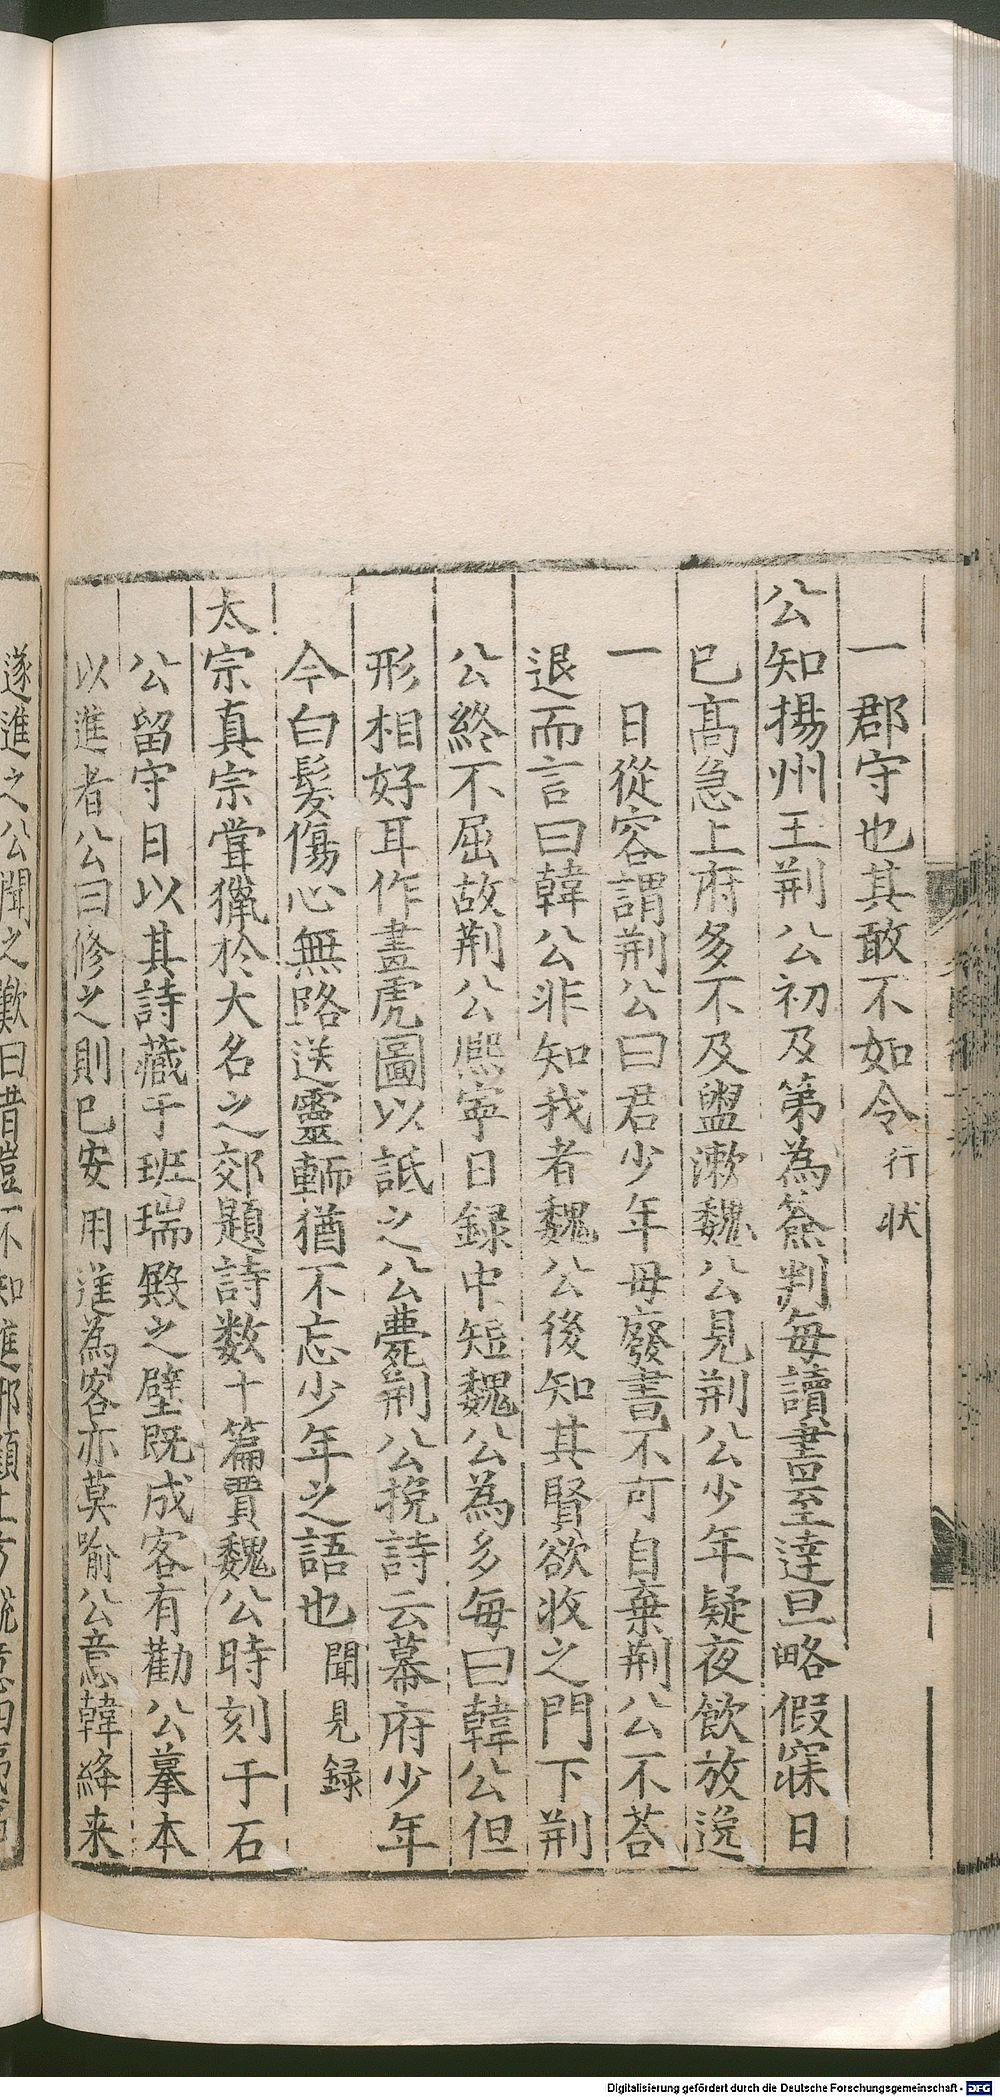 一郡守也其敢不如令行状
公知揚州王荆公初及第為簽判每讀書至達旦略假寐日
已髙急上府多不及盥漱魏公見荆公少年疑夜飲放逸
一日從容謂荆公曰君少年毋廢書不可自棄荆公不荅
退而言曰韓公非知我者魏公後知其賢欲收之門下荆
公終不屈故荆公熈寧日録中短魏公為多每曰韓公但
形相好耳作畫虎圖以詆之公薨荆公挽詩云幕府少年
今白髮傷心無路送靈輀猶不忘少年之語也聞見録
太宗真宗甞獵於大名之郊題詩数十篇賈魏公時刻于石
公留守日以其詩藏于班瑞殿之壁既成客有勸公摹本
以進者公曰修之則已安用進為客亦莫喻公意韓絳来
遂進之公聞之歎曰昔豈不知進耶顧上方鋭意四夷
Digitalisierung gefördert durch die Deutsche Forschungsgemeinschaft - DFG